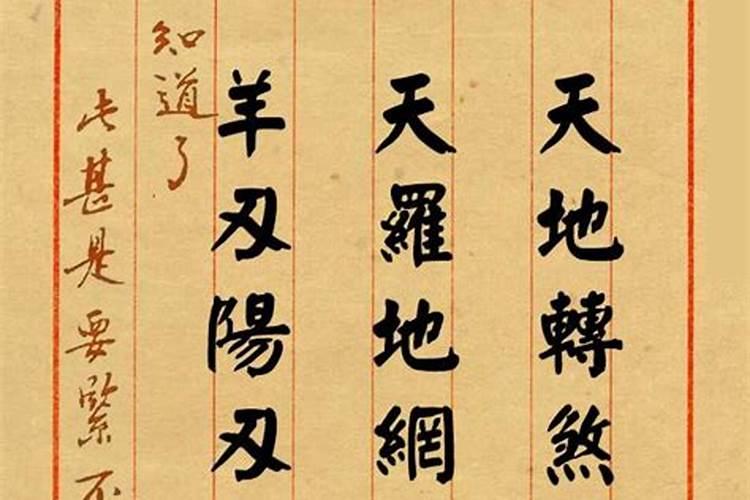 天地轉煞
天羅地網
羊刃陽刃
知道了
此甚是要緊不